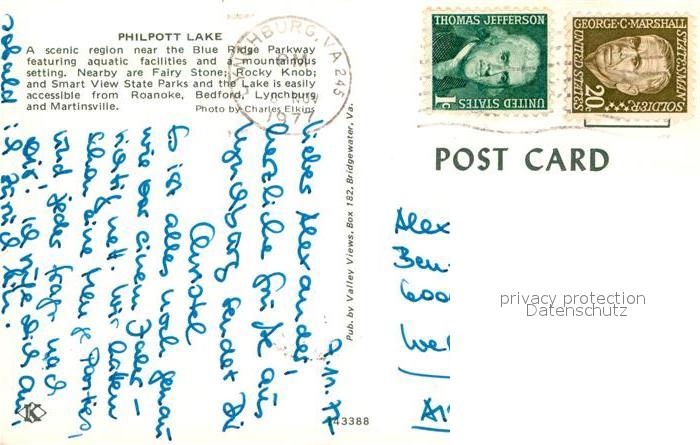 PHILPOTT LAKE
A scenic region near the Blue Ridge Parkway
featuring aquatic facilities and a mountainous
setting. Nearby are Fairy Stone; Rocky Knob;
and Smart View State Parks and the Lake is easily
accessible from Roanoke, Bedford, Lynchburg
and Martinsville.
Photo by Charles Elkins
LYNCHBURG, VA 245
PM
1977
THOMAS JEFFERSON
1c
UNITED STATES
GEORGE·C·MARSHALL
STATESMAN
SOLDIER
20c
UNITED STATES
POST CARD
Pub. by Valley Views, Box 182, Bridgewater, Va.
43388
K
Lieber Alexander,
herzliche Grüße aus
Lynchburg sendet Dir
Christel
Es ist alles noch genau
wie vor einem Jahr –
richtig nett. Wir hatten
schon eine neue Parties,
und jeder fragt nach
Dir! Ich rufe Dich an,
sobald ich zurück bin.
Alex
Ben
600
privacy protection
Datenschutz